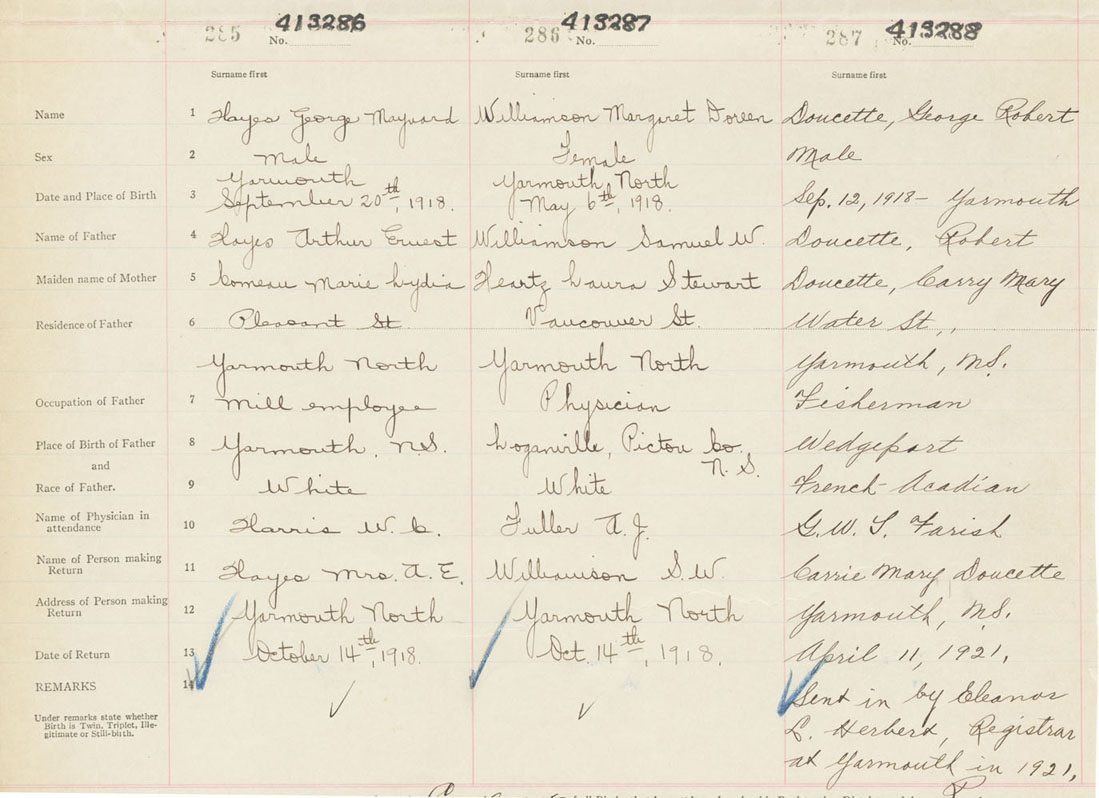 285 No. 413286 286 No. 413287 287 No. 413288
Surname first Surname first Surname first
Name 1 Hayes George Maynard Williamson Margaret Doreen Doucette, George Robert
Sex 2 Male Female Male
Yarmouth Yarmouth North
Date and Place of Birth 3 September 20th, 1918. May 6th, 1918. Sep. 12, 1918 - Yarmouth
Name of Father 4 Hayes Arthur Ernest Williamson Samuel W. Doucette, Robert
Maiden name of Mother 5 Comeau Marie Lydia Heartz Laura Stewart Doucette, Carry Mary
Residence of Father 6 Pleasant St. Vancouver St. Water St.,
Yarmouth North Yarmouth North Yarmouth, N.S.
Occupation of Father 7 Mill employee Physician Fisherman
Place of Birth of Father 8 Yarmouth, N.S. Loganville, Pictou Co. Wedgeport
and N.S.
Race of Father. 9 White White French-Acadian
Name of Physician in
attendance 10 Harris W. C. Fuller A. J. G. W. T. Farish
Name of Person making
Return 11 Hayes Mrs. A. E. Williamson S. W. Carrie Mary Doucette
Address of Person making
Return 12 Yarmouth North Yarmouth North Yarmouth, N.S.
Date of Return 13 October 14th, 1918. Oct. 14th, 1918. April 11, 1921.
REMARKS 14 Sent in by Eleanor
Under remarks state whether
Birth is Twin, Triplet, Ille-
gitimate or Still-birth. L. Herbert, Registrar
at Yarmouth in 1921.